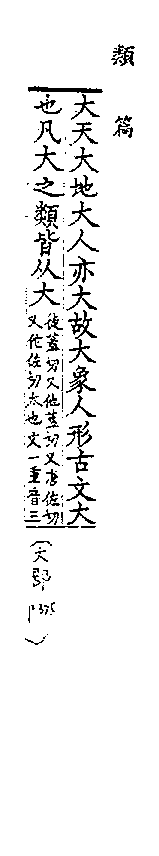 類篇
大天大地大人亦大故大象人形古文大
也凡大之類皆从大
徒蓋切又他蓋切又唐佐切
又佗佐切太也文一重音三
(大部